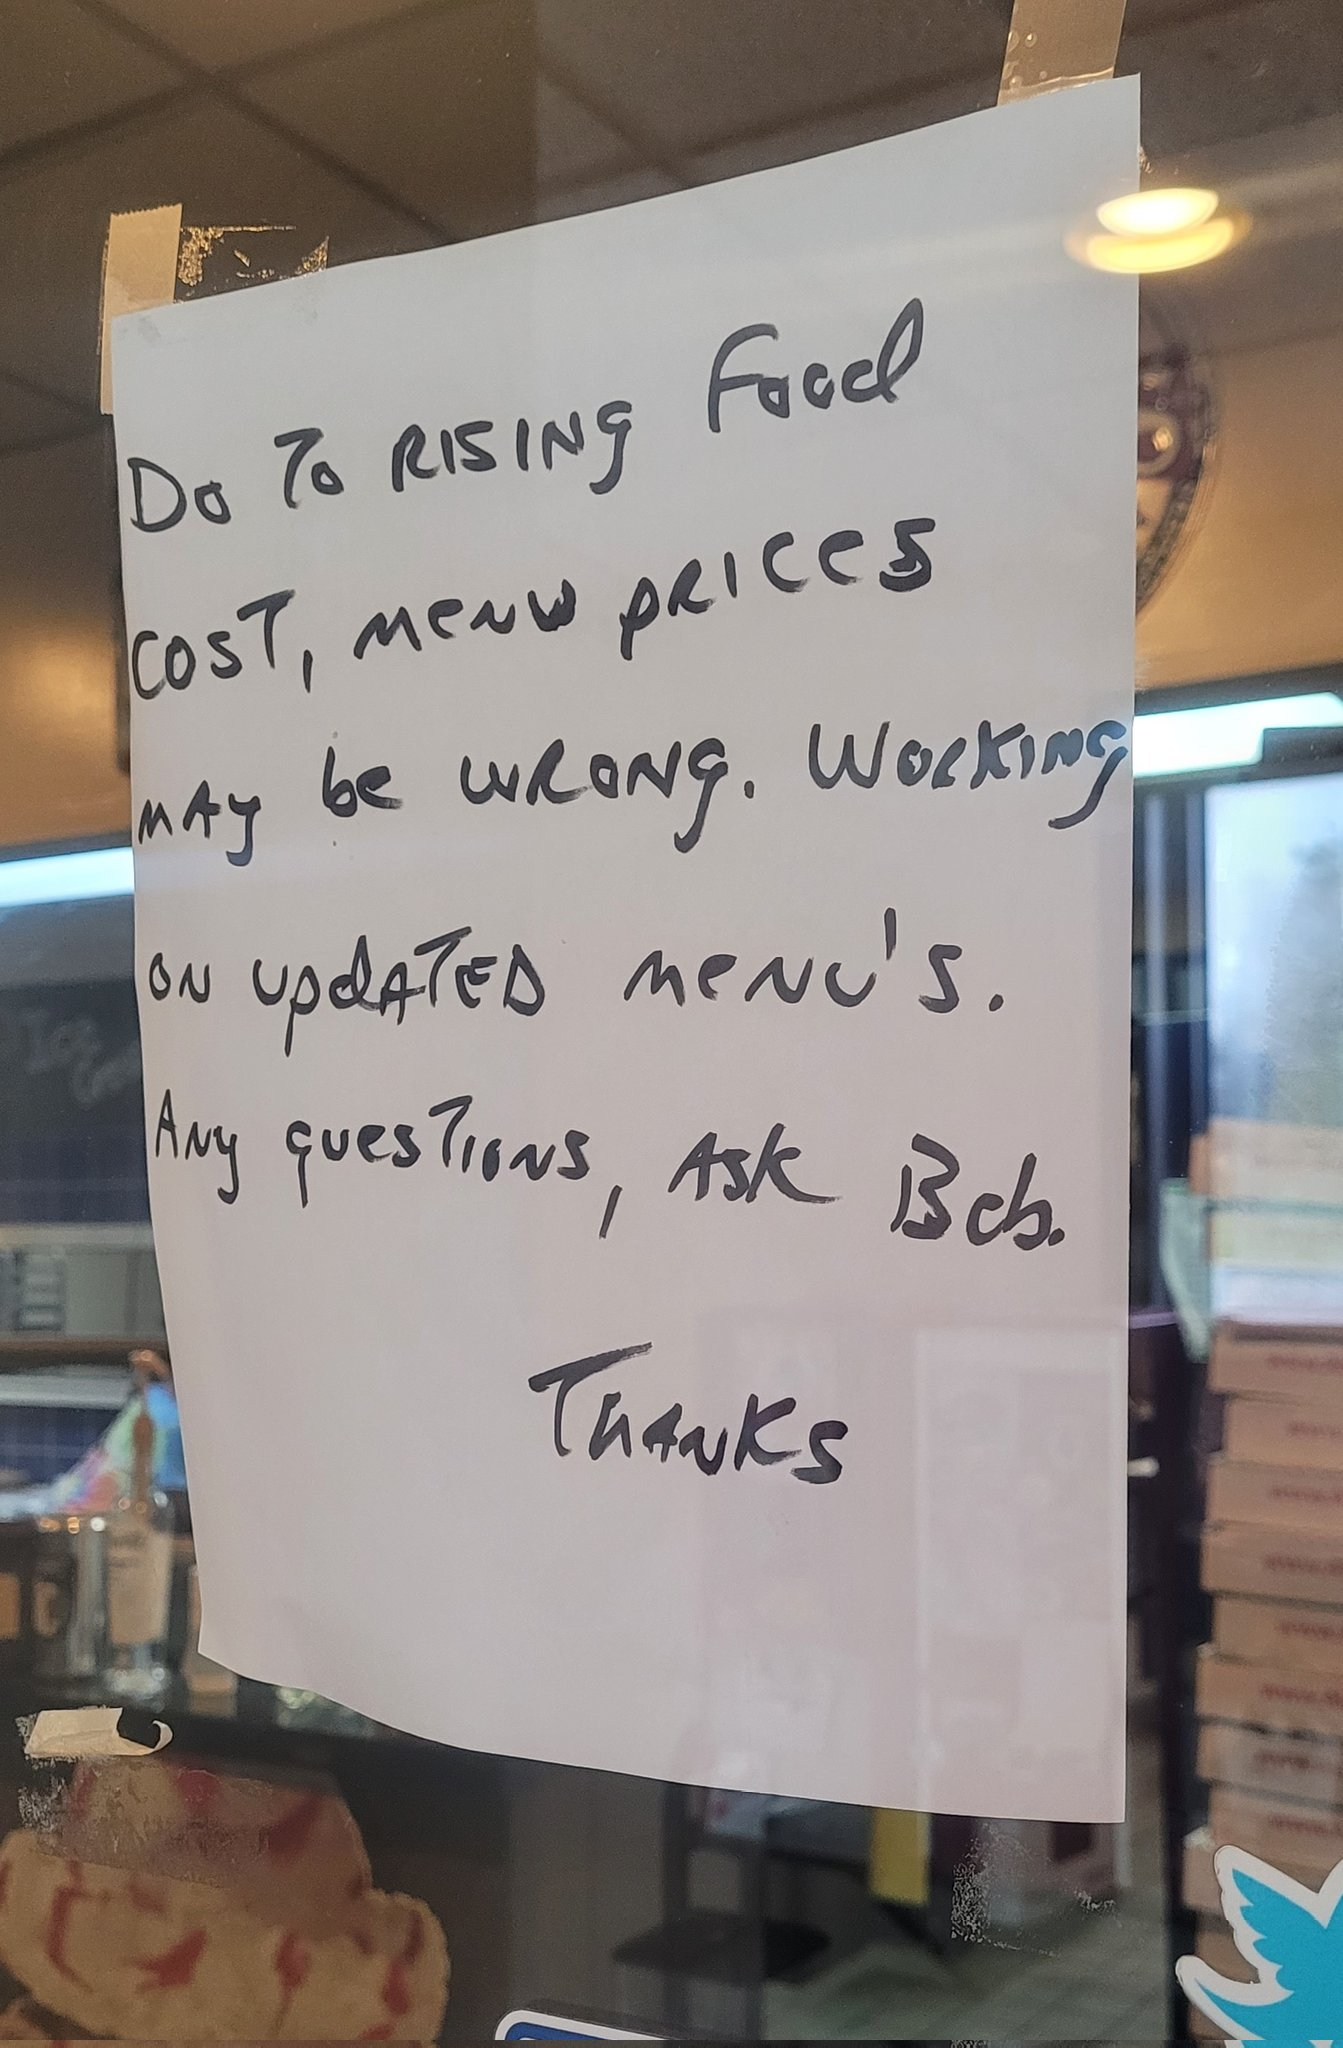 Do To RISING Food
COST, MENU PRICES
MAY be WRONG. WORKING
ON UPDATED MENU'S.
ANY QUESTIONS, ASK Bob.
THANKS